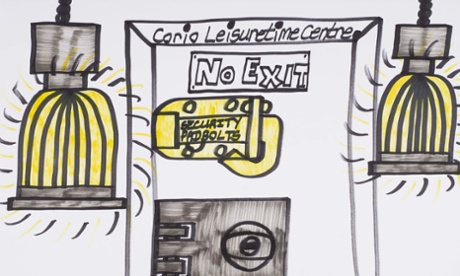 Corio Leisuretime Centre.
No EXIT
SECURITY
PADBOLTS